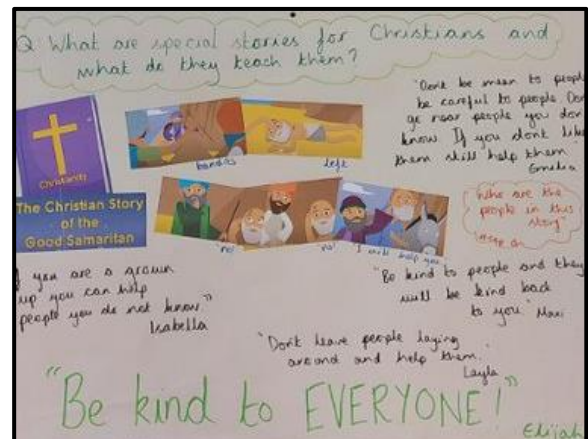 Q: What are special stories for Christians and
what do they teach them?
Christianity
The Christian Story
of the
Good Samaritan
left
"no!"
"no!"
I will help you
"Dont be mean to people
be careful to people. Don
go near people you don
know. If you dont like
them still help them
Emelia
"Who are the
people in this
story"
f you are a grown
up you can help
people you do not know."
Isabella
"Be kind to people and they
will be kind back
to you"
"Dont leave people laying
around and help them."
Layla
"Be kind to EVERYONE!"
Elijah